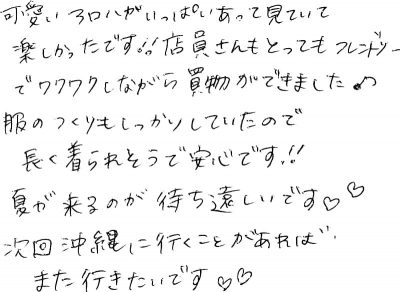 可愛いアロハがいっぱいあって見ていて
楽しかったです!!店員さんもとってもフレンドリー
でワクワクしながら買物ができました♪
服のつくりもしっかりしていたので
長く着られそうで安心です!!
夏が来るのが待ち遠しいです♡♡
次回沖縄に行くことがあれば
また行きたいです♡♡